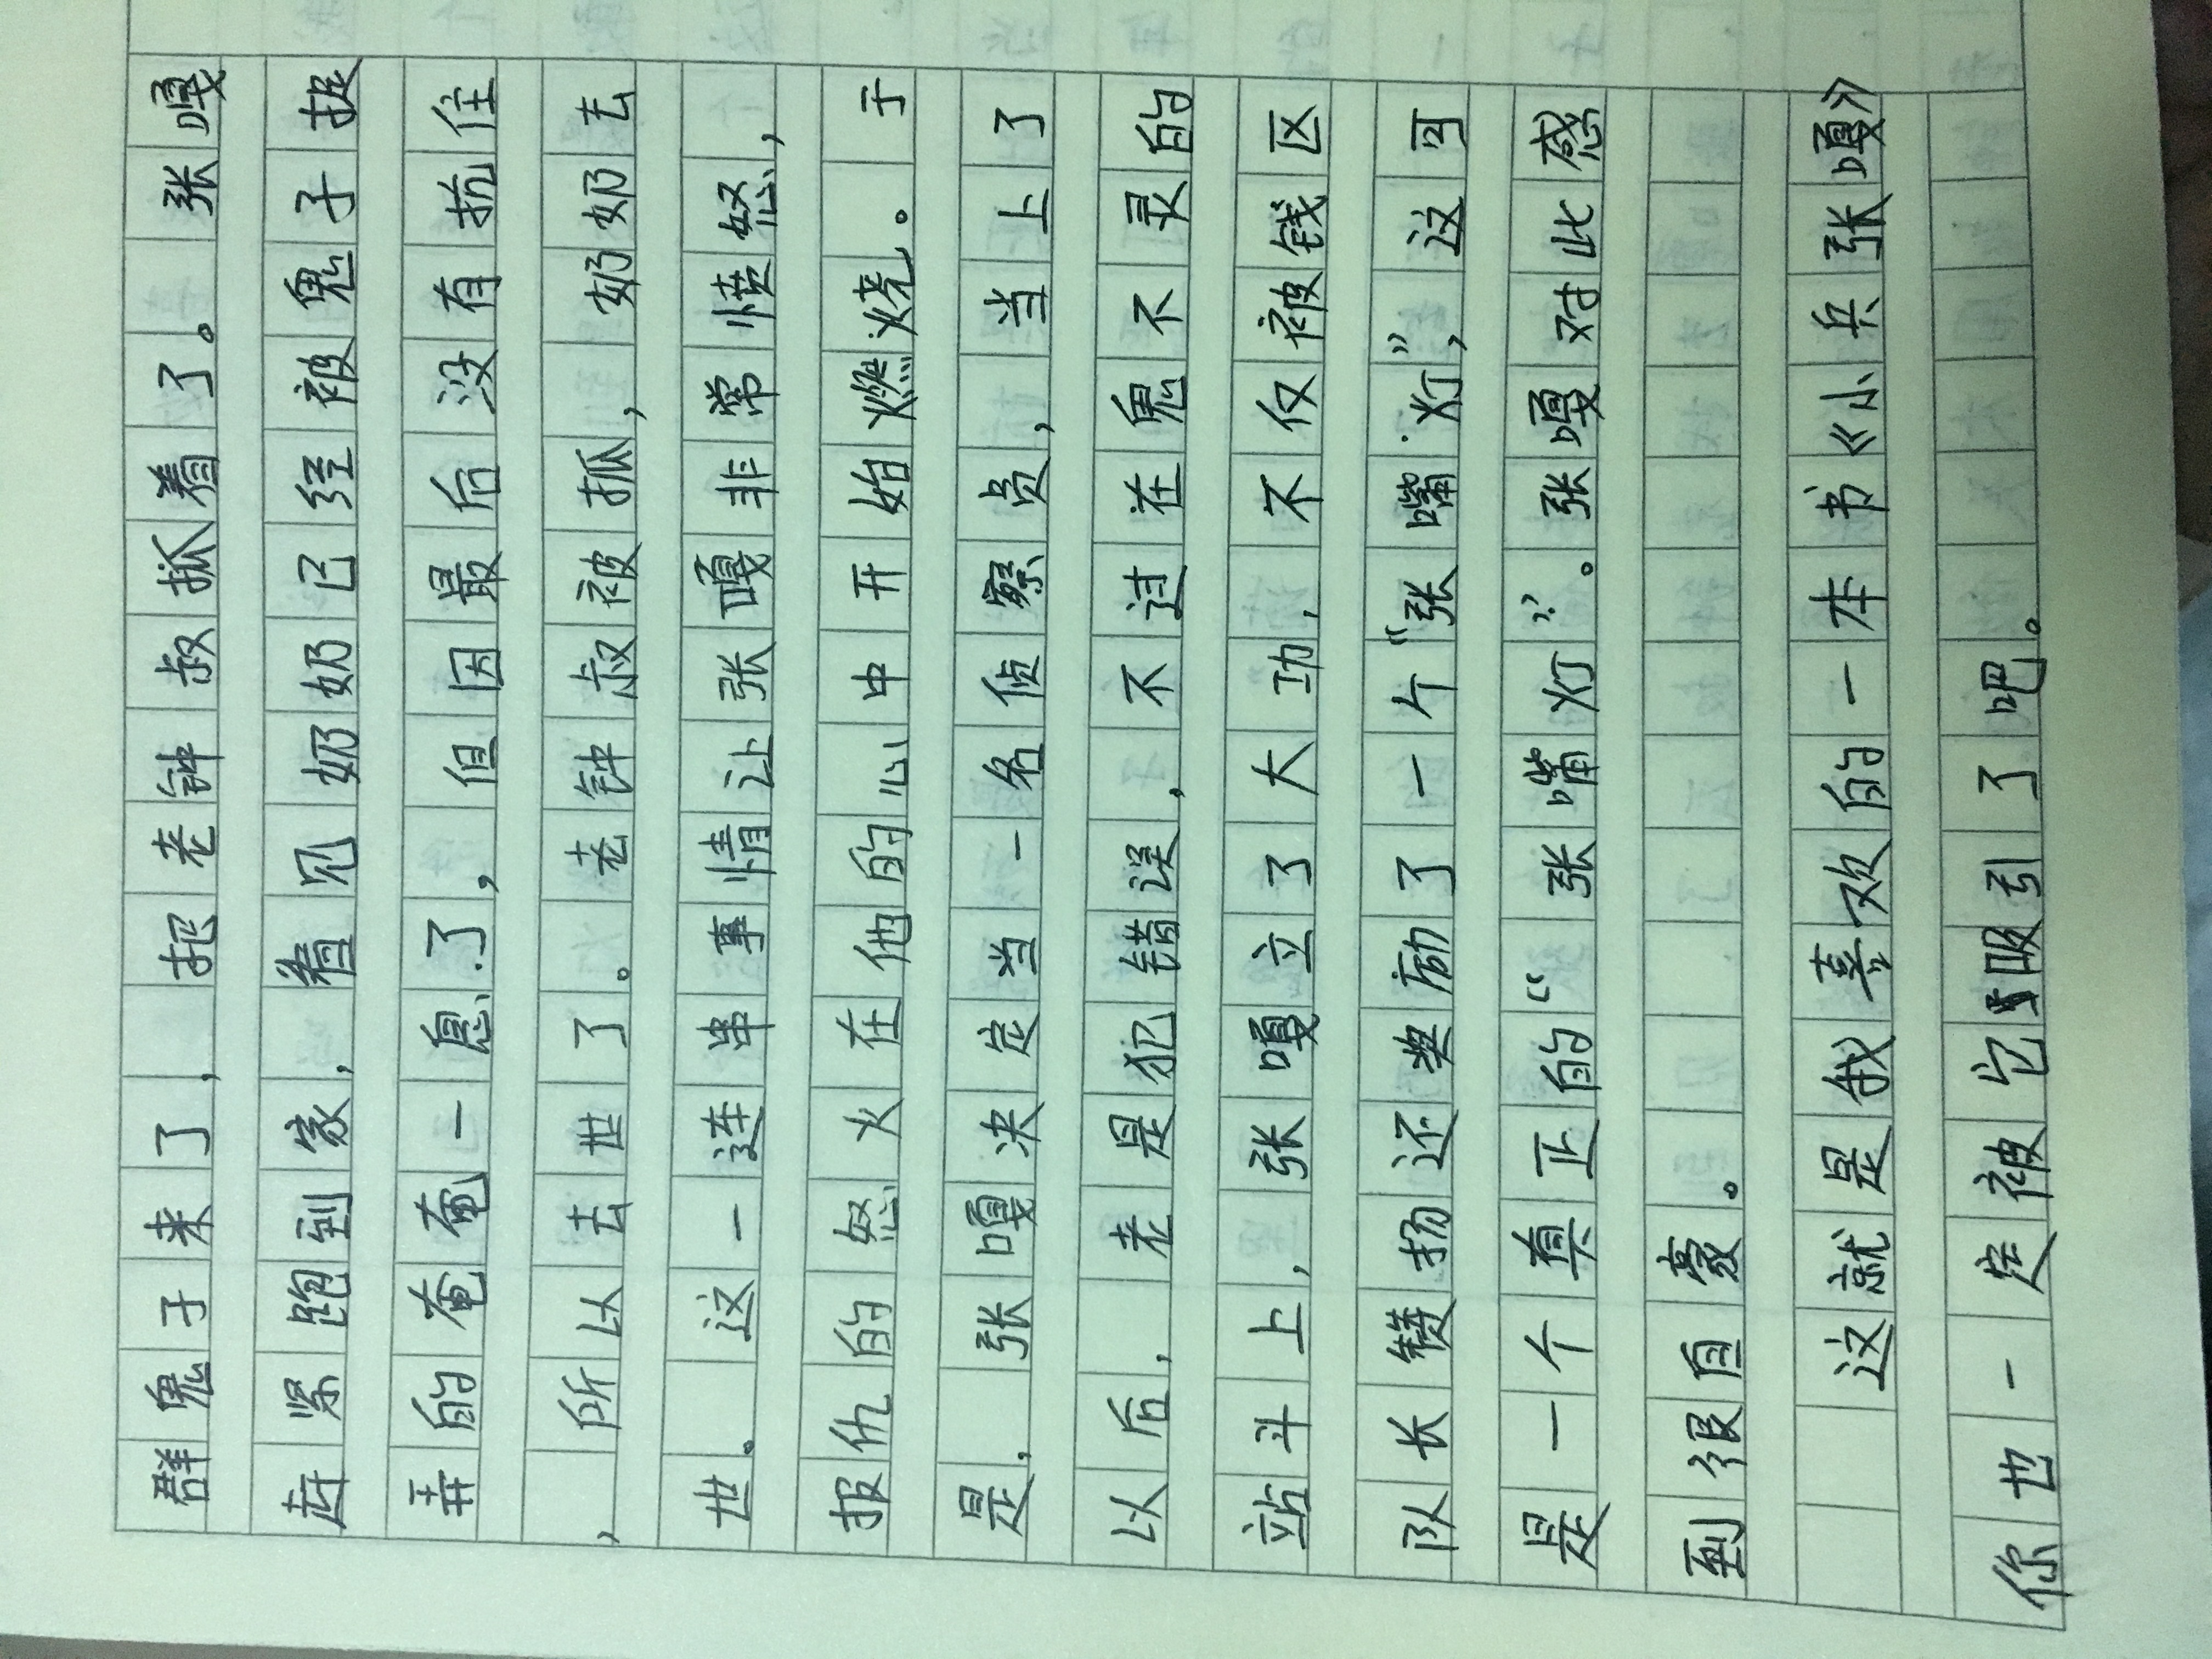 群鬼子来了，把老钟叔抓着了。张嘎
赶紧跑到家，看见奶奶已经被鬼子捉
弄的奄奄一息了，但因最后没有抗住
，所以去世了。老钟叔被抓，奶奶去
世。这一连串事情让张嘎非常愤怒，
报仇的怒火在他的心中开始燃烧。于
是，张嘎决定当一名侦察员，当上了
以后，老是犯错误，不过在鬼不灵的
站斗上，张嘎立了大功，不仅被钱区
队长赞扬还奖励了一个“张嘴灯”，这可
是一个真正的“张嘴灯”。张嘎对此感
到很自豪。
这就是我喜欢的一本书《小兵张嘎》
你也一定被它吸引了吧。